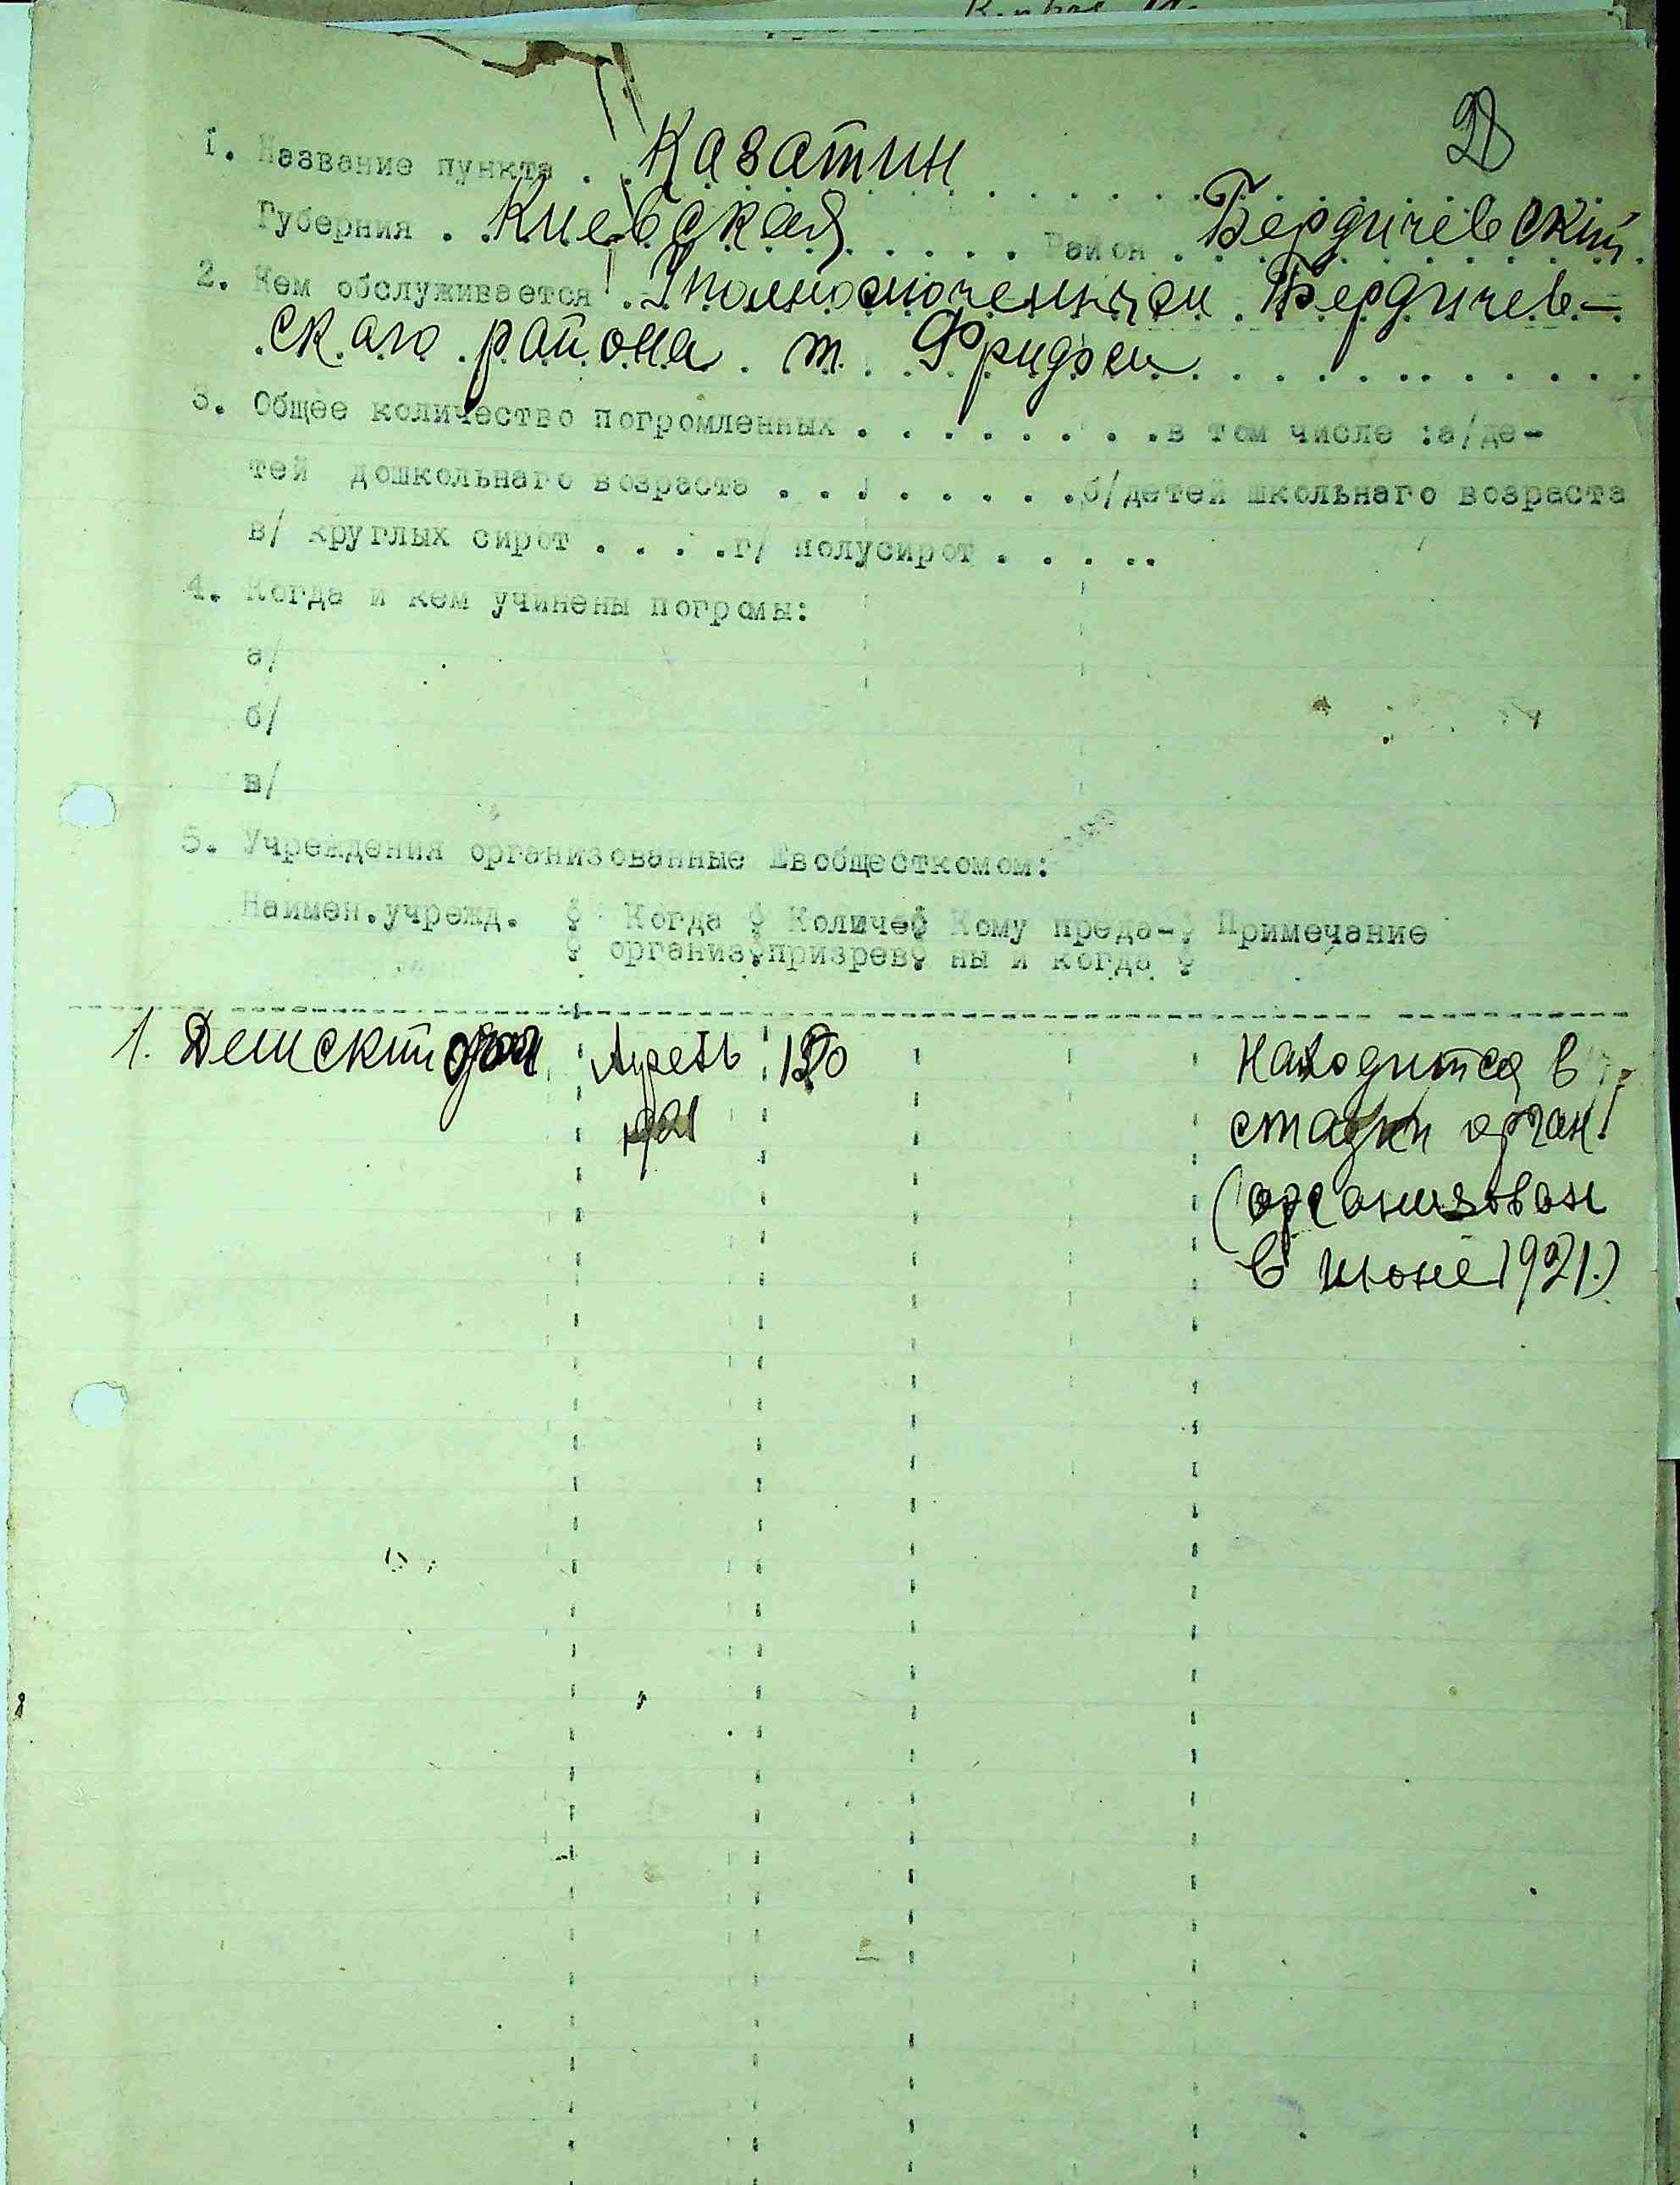 28
1. Название пункта . Казатин
Губерния . Киевская . . . . . Район . Бердичевский
2. Кем обслуживается . Уполномоченным Бердичев-
скаго района т. Фридман
3. Общее количество погромленных . . . . . . . . .в том числе :а/де-
тей дошкольнаго возраста . . . . . . . . .б/детей школьнаго возраста
в/ круглых сирот . . . .г/ полусирот . . . . .
4. Когда и кем учинены погромы:
а/
б/
в/
5. Учреждения организованные Евобщесткомом:
Наимен.учрежд. Когда Количес Кому преда- Примечание
организ. призрев. ны и когда
1. Детский дом 120 Находится в
1921 стадии орган.
(организован
в июне 1921.)